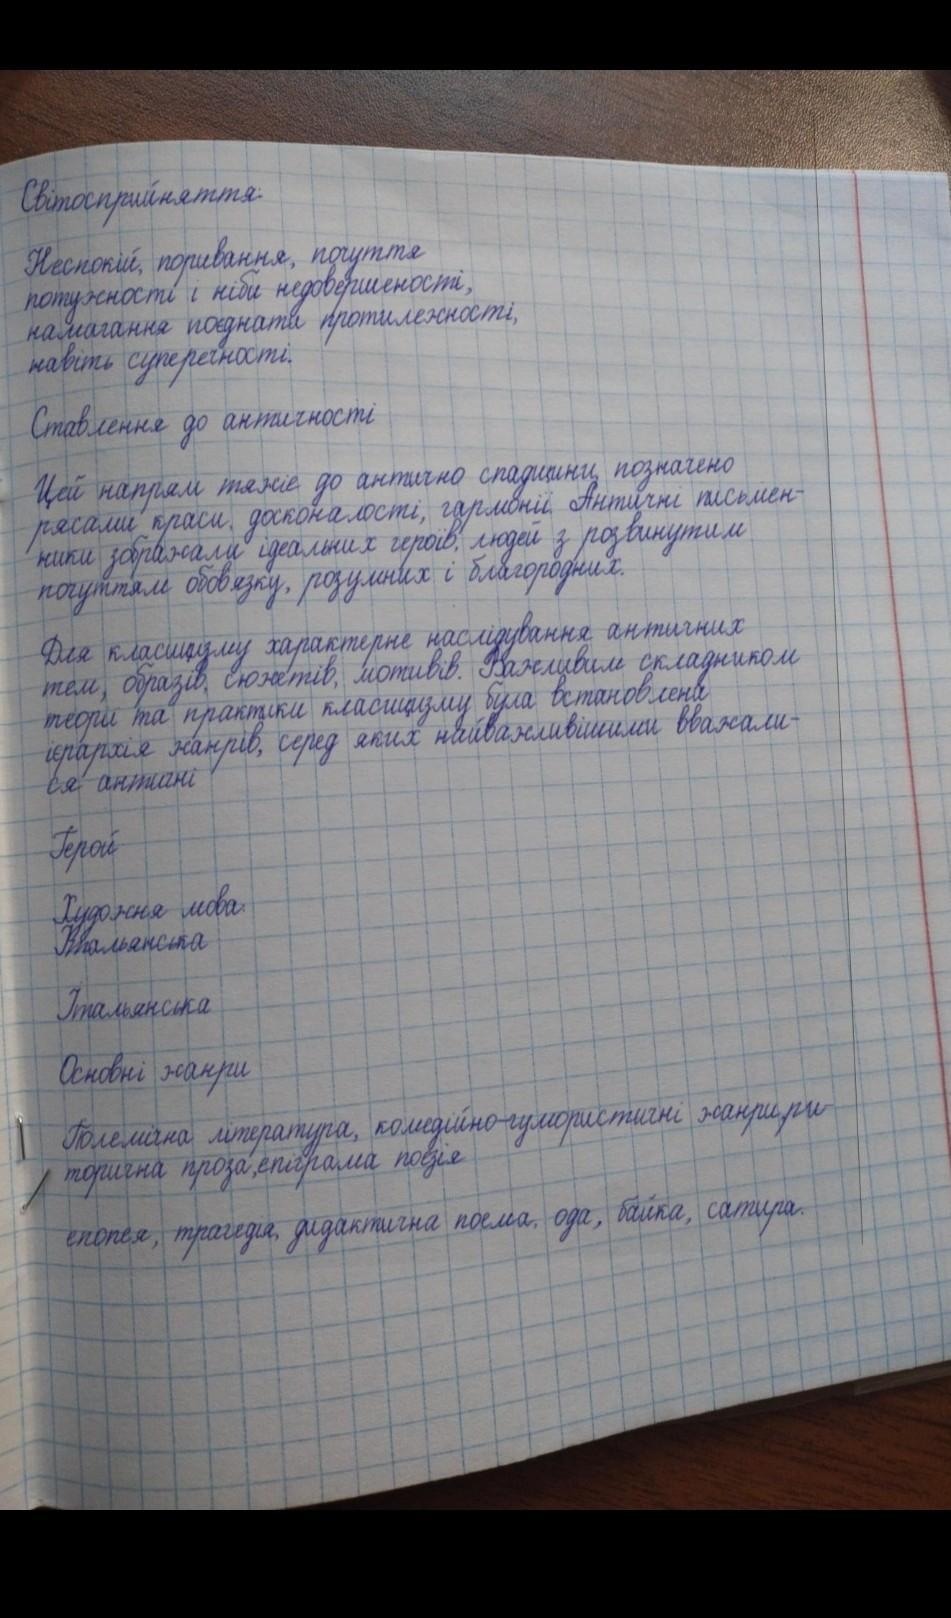 Світосприйняття.
Неспокій, поривання, почуття
потужності і ніби недовершеності,
намагання поєднати протилежності,
навіть суперечності.
Ставлення до античності
Цей напрям тяжіє до антично спадщини, позначено
рясами краси, досконалості, гармонії. Античні письмен-
ники зображали ідеальних героїв, людей з розвинутим
почуттям обов'язку, розумних і благородних.
Для класицизму характерне наслідування античних
тем, образів, сюжетів, мотивів. Важливим складником
теорії та практики класицизму була встановлена
ієрархія жанрів, серед яких найважливішими вважали-
ся античні
Герой
Художня мова.
Італьянська
Італьянська
Основні жанри
Полемічна література, комедійно-гумористичні жанри, ри-
торична проза, епіграма поезія
епопея, трагедія, дидактична поема, ода, байка, сатира.